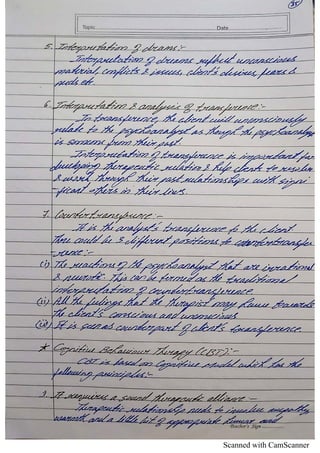 35
Topic
Date
5. Interpretation of dreams :-
Interpretation of dreams reflect unconscious
material, conflicts & issues, client's desires, fears &
needs etc.
6. Interpretation & analysis of transference :-
In transference, the client will unconsciously
relate to the psychoanalyst as though the psychoanalyst
is someone from their past.
Interpretation of transference is important for
developing therapeutic relation & help client to resolve
& work through their past relationships with signi-
-ficant others in their lives.
7. Countertransference :-
It is the analyst's transference to the client
There could be 3 different positions to countertransfer-
rence :-
(i) The reactions of the psychoanalyst that are irrational
& neurotic. This can be termed as the traditional
interpretation of countertransference.
(ii) All the feelings that the therapist may have towards
the client's conscious and unconscious
(iii) It is seen as counterpart of client's transference.
* Cognitive Behaviour Therapy (CBT) :-
CBT is based on Cognitive model which has the
following principles :-
It requires a sound therapeutic alliance -
Therapeutic relationship needs to involve empathy
warmth and a little bit of appropriate humor and
Teacher's Sign
Scanned with CamScanner